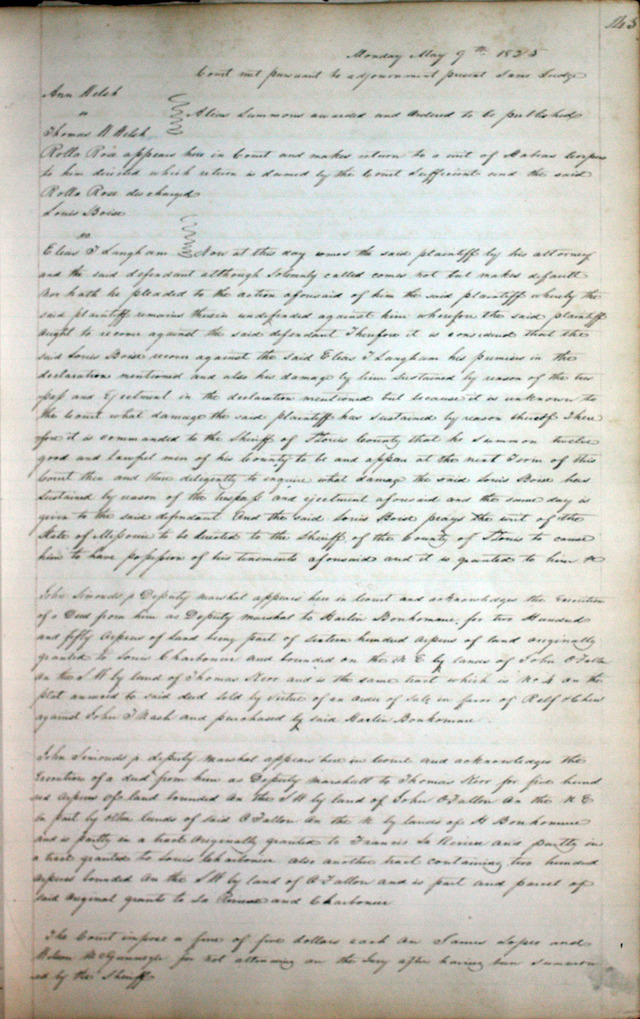 143
Monday May 9th 1825
Court met pursuant to adjournment present same Judge
Ann Welsh
vs
Alias Summons awarded and ordered to be published
Thomas W Welsh
Rolla Rose appears here in Court and makes return to a writ of Habeas Corpus
to him directed which return is deemed by the Court Sufficient and the said
Rolla Rose discharged
Louis Boise
vs
Elias T Langham Now at this day comes the said plaintiff by his attorney
and the said defendant although Solemnly called comes not but makes default
Nor hath he pleaded to the action aforesaid of him the said plaintiff whereby the
said plaintiff remains therein undefended against him wherefore the said plaintiff
ought to recover against the said defendant Therefore it is considered that the
said Louis Boise recover against the said Elias T Langham his premises in the
declaration mentioned and also his damage by him Sustained by reason of the tres
pass and Ejectment in the declaration mentioned but because it is unknown to
the Court what damage the said plaintiff has sustained by reason thereof There
fore it is commanded to the Sheriff of St Louis County that he Summon twelve
good and lawful men of his County to be and appear at the next Term of this
Court then and there diligently to inquire what damage the said Louis Boise has
Sustained by reason of the trespass and ejectment aforesaid and the same day is
given to the said defendant And the said Louis Boise prays the writ of the
State of Missouri to be directed to the Sheriff of the County of St Louis to cause
him to have possession of his tenements aforesaid and it is granted to him &c
John Simonds jr Deputy marshal appears here in Court and acknowledges the Execution
of a Deed from him as Deputy marshal to Bonhomme for two Hundred
and fifty Arpens of land being part of sixteen hundred arpens of land originally
granted to Louis Charbonier and bounded on the N E by lands of John O Fallon
on the S W by land of Thomas Kerr and is the same tract which is No 4 on the
plat annexed to said deed sold by virtue of an order of Sale in favor of Relf & Chew
against John T Nash and purchased by said Bonhomme
John Simonds jr deputy marshal appears here in Court and acknowledges the
Execution of a deed from him as Deputy marshall to Thomas Kerr for five hund
red arpens of land bounded on the S W by land of John O Fallon on the N E
in part by other lands of said O Fallon on the N by lands of H Bonhomme
and is partly in a tract originally granted to Francis La and partly in
a tract granted to Louis Charbonier also another tract containing two hundred
arpens bounded on the S W by land of O Fallon and is part and parcel of
said original grants to La and Charbonier
The Court impose a fine of five dollars each on James Lopes and
Wilson for not attending on the Jury after having been summon
ed by the Sheriff